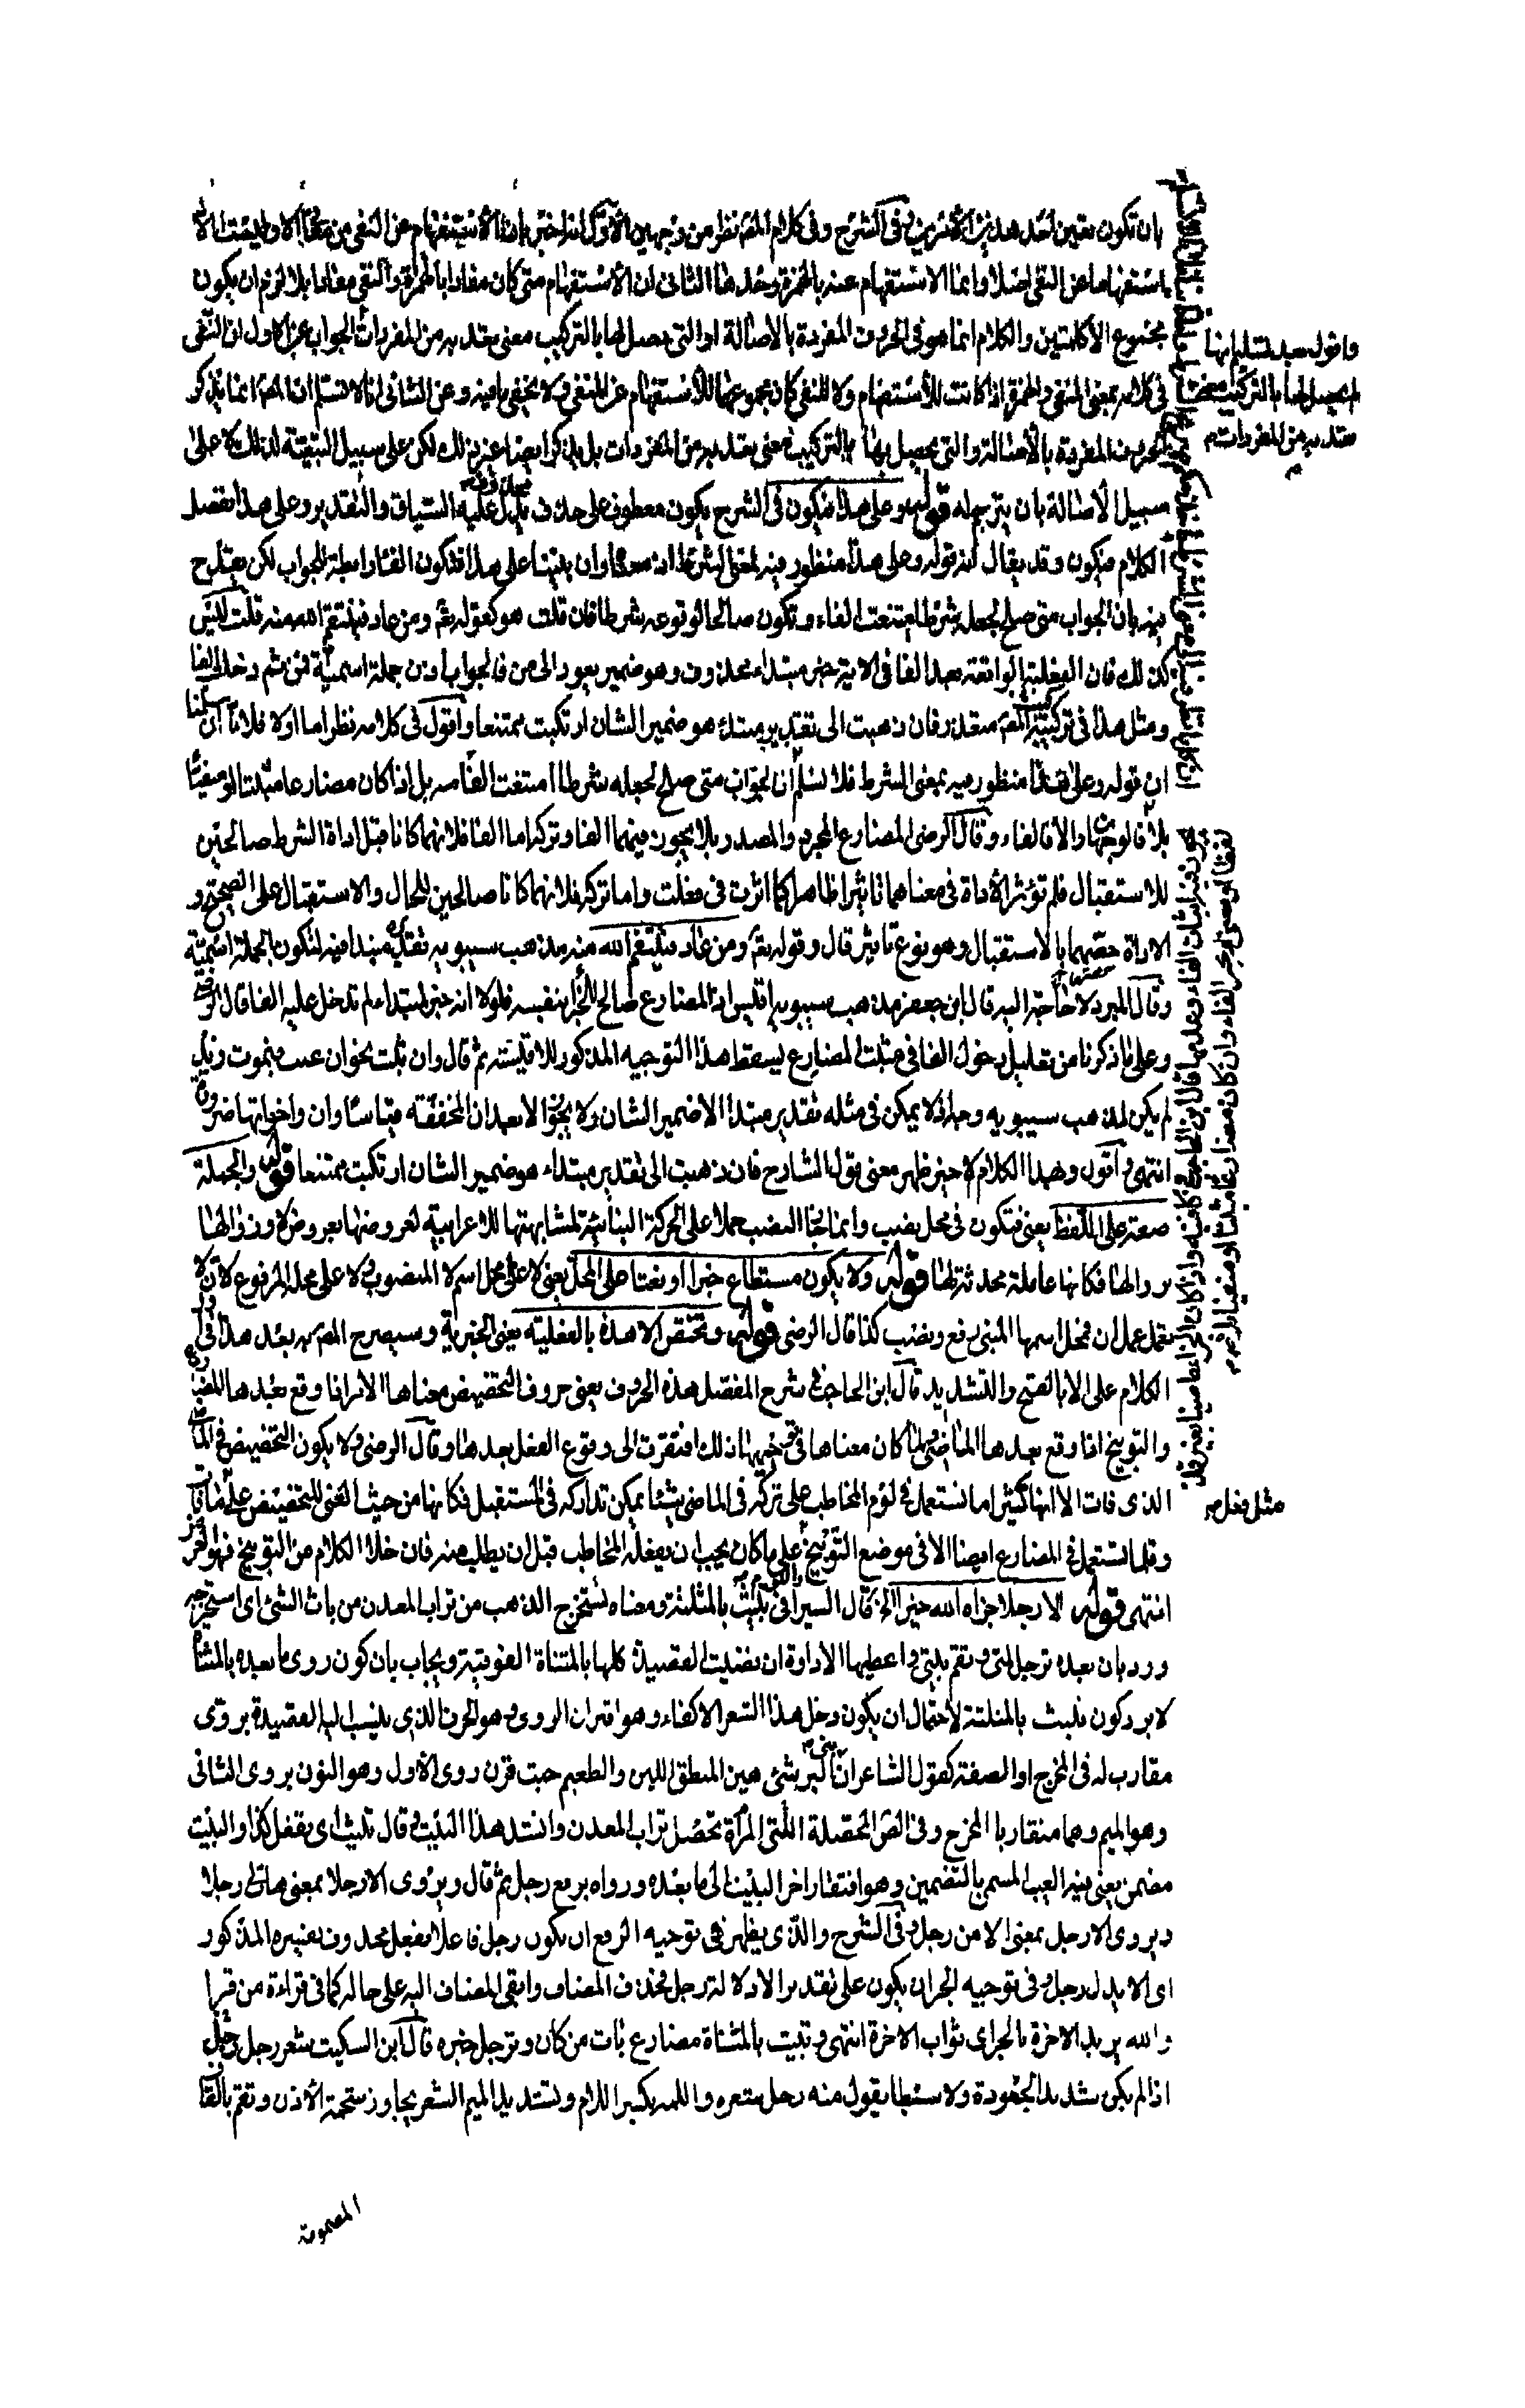 بان تكون تعين احد هذين الأمرين وفى الشرح وفى كلام المص نظر من وجهين الأول انه اخبر بان الاستفهام عن النفى من معانى الا وليست الا
استفهاما عن النفى اصلا وانما الاستفهام عنه بالهمزة وحدها الثانى ان الاستفهام متى كان مفادا بالهمزة والنفى مفادا بلا لزم ان يكون
مجموع الا كلمتين والكلام انما هو فى الحروف المفردة بالاصالة او التى يحصل لها بالتركيب معنى بعد من المفردات الجواب عن الاول ان النفى
فى كلامه بمعنى المنفى والهمزة اذا كانت للاستفهام ولا للنفى كان مجموعهما للاستفهام عن المنفى ولا يخفى ما فيه وعن الثانى انا لا نسلم ان المص انما يذكر
الحروف المفردة بالاصالة والتى يحصل لها بالتركيب معنى من المفردات بل يذكر ايضا غير ذلك لكن على سبيل التبعية لذلك لا على
سبيل الأصالة بان يترجم له قوله وعلى هذا فيكون فى الشرح يكون معطوف على محذوف يدل عليه السياق والتقدير وعلى هذا يفصل
الكلام فيكون وقد يقال ان قوله وعلى هذا منظور فيه لمعنى الشرط اى وان بنينا على هذا فتكون الفاء رابطة للجواب لكن يقدح
فيه بان الجواب متى صلح لجعله شرطا امتنعت الفاء وتكون صالحا لوقوعه شرطا فان قلت هو كقوله تعم ومن عاد فينتقم الله منه قلت ليس
كذلك فان الفعلية الواقعة بعد الفا فى الاية خبر مبتداء محذوف وهو ضمير يعود الى من فالجواب اذن جملة اسمية فمن ثم دخل الفا
ومثل هذا فى تركيب المص متعذر فان ذهبت الى تقدير مبتداء هو ضمير الشان ارتكبت ممتنعا واقول فى كلامه نظر اما اولا فلانا ان سلمنا
ان قوله وعلى هذا منظور فيه بمعنى الشرط فلا نسلم ان الجواب متى صلح لجعله شرطا امتنعت الفا منه بل اذا كان مضارعا مثبتا او منفيا
بلا فالوجهان والا فالفاء وقال الرضى المضارع المجرد والمصدر بلا يجوز فيهما الفا وتركها اما الفا فلانهما كانا قبل اداة الشرط صالحين
للاستقبال فلم تؤثر الاداة فى معناهما تاثيرا ظاهرا كما اثرت فى فعلت واما تركه فلانهما كانا صالحين للحال والاستقبال على الصحيح و
الاداة خصتهما بالاستقبال وهو نوع تاثير قال وقوله تعم ومن عاد فينتقم الله منه مذهب سيبويه تقدير مبتدا فيه لتكون الجملة اسمية
وقال المبرد لا حاجة اليه قال ابن جعفر مذهب سيبويه اقيس اذ المضارع صالح للجزا بنفسه فلولا انه خبر لمبتداء لم تدخل عليه الفا قال الرضى
وعلى ما ذكرنا من تعليل دخول الفا فى مثبت المضارع يسقط هذا التوجيه المذكور للاقيسية ثم قال وان ثبت نحو ان عب فيموت زيد
لم يكن لمذهب سيبويه وجه اذ لا يمكن فى مثله تقدير مبتدا الا ضمير الشان ولا يجوز الا بعد ان المخففة قياسا وان واخواتها ضرورة
انتهى واقول وبهذا الكلام الاخير ظهر معنى قول الشارح فان ذهبت الى تقدير مبتداء هو ضمير الشان ارتكبت ممتنعا قوله والجملة
صفة على اللفظ يعنى فتكون فى محل نصب وانما جا النصب حملا على الحركة البنائية لمشابهتها للاعرابية لعروضها بعروض لا وزوالها
بزوالها فكانها عاملة محدثة لها قوله ولا يكون مستطاع خبرا او نعتا على المحل يعنى لا على محل اسم لا المنصوب ولا على محله المرفوع لان لا
تعمل عمل ان فمحل اسمها المبنى رفع ونصب كذا قال الرضى قوله وتختص الا هذه بالفعلية يعنى الخبرية وسيصرح المص به بعد هذا فى
الكلام على الا بالفتح والتشديد قال ابن الحاجب فى شرح المفصل هذه الحروف يعنى حروف التحضيض معناها الامر اذا وقع بعدها المضارع
والتوبيخ اذا وقع بعدها الماضى ولما كان معناها فى وجهيها ذلك افتقرت الى وقوع الفعل بعدها وقال الرضى ولا يكون التحضيض فى الماضى
الذى فات الا انها كثيرا ما تستعمل فى لوم المخاطب على تركه فى الماضى شيئا يمكن تداركه فى المستقبل فكانها من حيث المعنى للتحضيض على ما فات
وقلما تستعمل فى المضارع ايضا الا فى موضع التوبيخ على ما كان يجب ان يفعله المخاطب قبل ان يطلب منه فان خلا الكلام من التوبيخ فهو العرض
انتهى قوله الا رجلا جزاه الله خيرا الخ قال السيرافى تبيث بالمثلثة ومعناه تستخرج الذهب من تراب المعدن من باث الشئ اى استخرجه
ورد بان بعده ترجل لمتى وتقم بيتى واعطيها الاداوة ان نضيت القصيدة كلها بالمثناة الفوقية ويجاب بان كون روى ما بعده بالمثناة
لا يرد كون تبيث بالمثلثة لاحتمال ان يكون دخل هذا الشعر الاكفاء وهو اقتران الروى وهو الحرف الذى ينسب اليه القصيدة بروى
مقارب له فى المخرج او الصفة كقول الشاعر ان البر شئ هين المنطق اللين والطعيم حيث قرن روى الاول وهو النون بروى الثانى
وهو الميم وهما متقاربا المخرج وفى الص المحصلة اللتى المرأة تحصل تراب المعدن وانشد هذا البيت وقال تبيث اى تفعل كذا والبيت
مضمن يعنى فيه العيب المسمى بالتضمين وهو افتقار اخر البيت الى ما بعده ورواه برفع رجل ثم قال ويروى الا رجلا بمعنى هات لى رجلا
ويروى الا رجل بمعنى الا من رجل وفى الشرح والذى يظهر فى توجيه الرفع ان يكون رجل فاعلا بفعل محذوف يفسره المذكور
اى الا يدل رجل وفى توجيه الجر ان يكون على تقدير الا دلالة رجل فحذف المضاف وابقى المضاف اليه على حاله كما فى قراءة من قرا
والله يريد الاخرة بالجر اى ثواب الاخرة انتهى وتبيت بالمثناة مضارع بات من كان وترجل خبره قال ابن السكيت شعر رجل ورجل
اذا لم يكن شديد الجعودة ولا سبطا يقول منه رجل شعره واللمة بكسر اللام وتشديد الميم الشعر يجاوز شحمة الأذن وتقم بالقاف
المضمومة
واقول بعد تسليم انها
لم يحصل لها بالتركيب معنى
من المفردات
مثل فعل